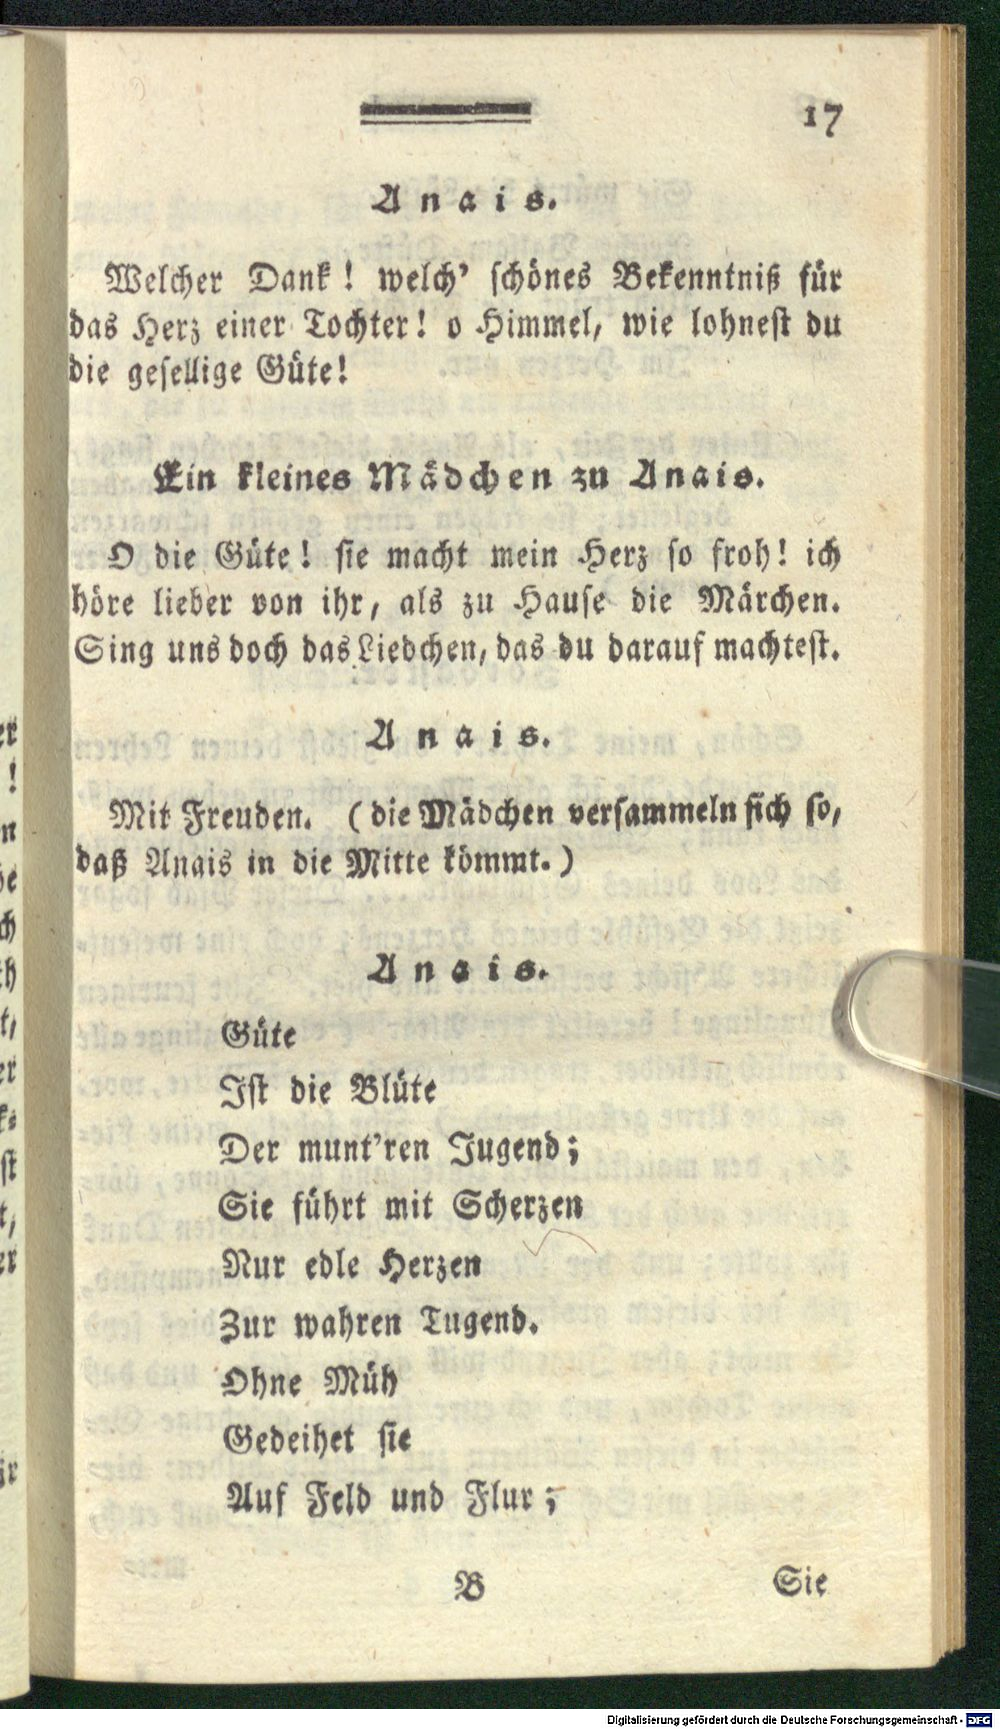 17
Anais.
Welcher Dank! welch' schönes Bekenntniß für
das Herz einer Tochter! o Himmel, wie lohnest du
die gesellige Güte!
Ein kleines Mädchen zu Anais.
O die Güte! sie macht mein Herz so froh! ich
höre lieber von ihr, als zu Hause die Märchen.
Sing uns doch das Liedchen, das du darauf machtest.
Anais.
Mit Freuden. (die Mädchen versammeln sich so,
daß Anais in die Mitte kömmt.)
Anais.
Güte
Ist die Blüte
Der munt'ren Jugend;
Sie führt mit Scherzen
Nur edle Herzen
Zur wahren Tugend.
Ohne Müh
Gedeihet sie
Auf Feld und Flur;
B
Sie
Digitalisierung gefördert durch die Deutsche Forschungsgemeinschaft - DFG